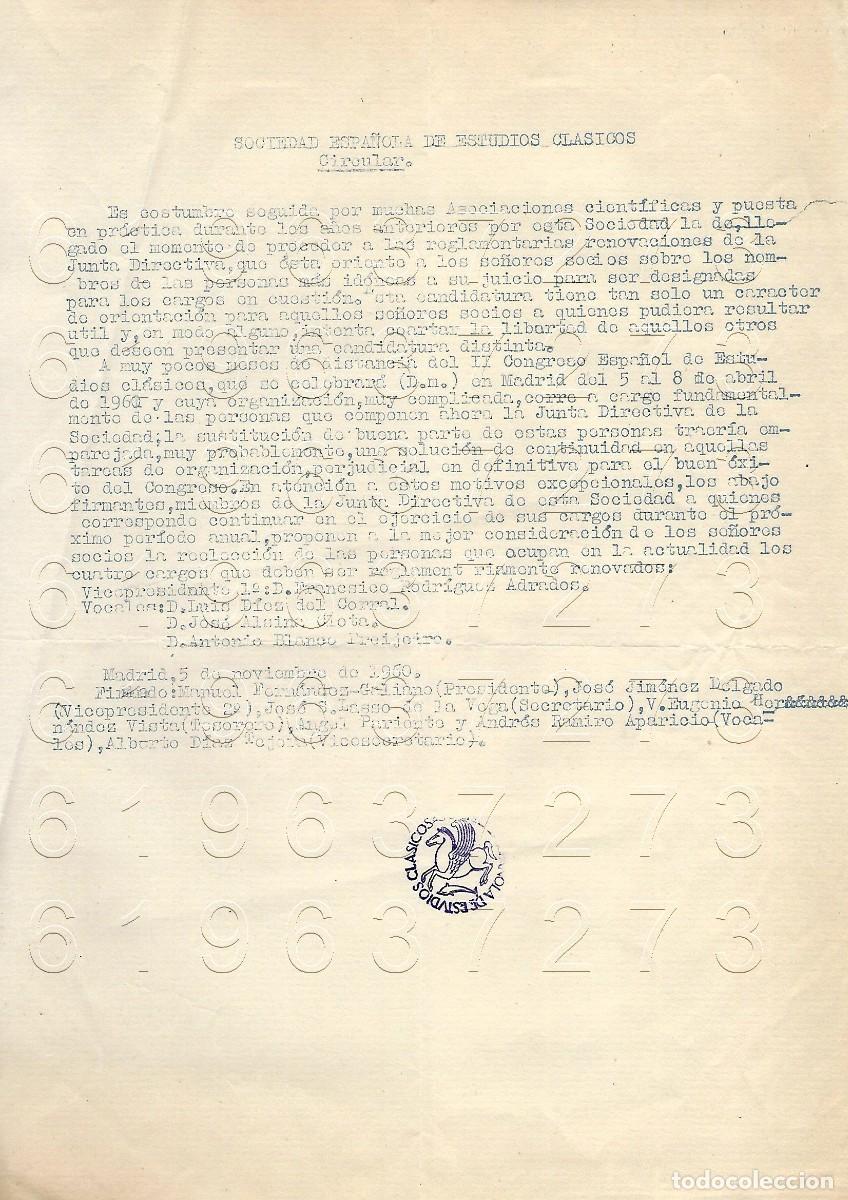 SOCIEDAD ESPAÑOLA DE ESTUDIOS CLASICOS
Circular.
Es costumbre seguida por muchas Asociaciones científicas y puesta
en práctica durante los años anteriores por esta Sociedad la de, lle-
gado el momento de proceder a las reglamentarias renovaciones de la
Junta Directiva, que ésta oriente a los señores socios sobre los nom-
bres de las personas más idóneas a su juicio para ser designadas
para los cargos en cuestión. Esta candidatura tiene tan solo un caracter
de orientación para aquellos señores socios a quienes pudiera resultar
util y, en modo alguno, intenta coartar la libertad de aquellos otros
que deseen presentar una candidatura distinta.
A muy pocos meses de distancia del II Congreso Español de Estu-
dios clásicos, que se celebrará (D.m.) en Madrid del 5 al 8 de abril
de 1961 y cuya organización, muy complicada, corre a cargo fundamental-
mente de las personas que componen ahora la Junta Directiva de la
Sociedad; la sustitución de buena parte de estas personas traería em-
parejada, muy probablemente, una solución de continuidad en aquellas
tareas de organización, perjudicial en definitiva para el buen éxi-
to del Congreso. En atención a estos motivos excepcionales, los abajo
firmantes, miembros de la Junta Directiva de esta Sociedad a quienes
corresponde continuar en el ejercicio de sus cargos durante el pró-
ximo período anual, proponen a la mejor consideración de los señores
socios la reelección de las personas que ocupan en la actualidad los
cuatro cargos que deben ser reglament riamente renovados:
Vicepresidnnte 1º: D. Francsico Rodríguez Adrados.
Vocales: D. Luis Díez del Corral.
D. José Alsina Clota.
D. Antonio Blanco Freijeiro.
Madrid, 5 de noviembre de 1960.
Firmado: Manuel Fernández-Galiano (Presidente), José Jiménez Delgado
(Vicepresidente 2º), José S. Lasso de la Vega (Secretario), V. Eugenio Her
nández Vista (Tesorero), Angel Pariente y Andrés Ramiro Aparicio (Voca-
les), Alberto Díaz Tejera (Vicesecretario).
CLASICOS DE ESTVDIOS
619637273
619637273
619637273
619637273
619637273
619637273
619637273
619637273
todocoleccion